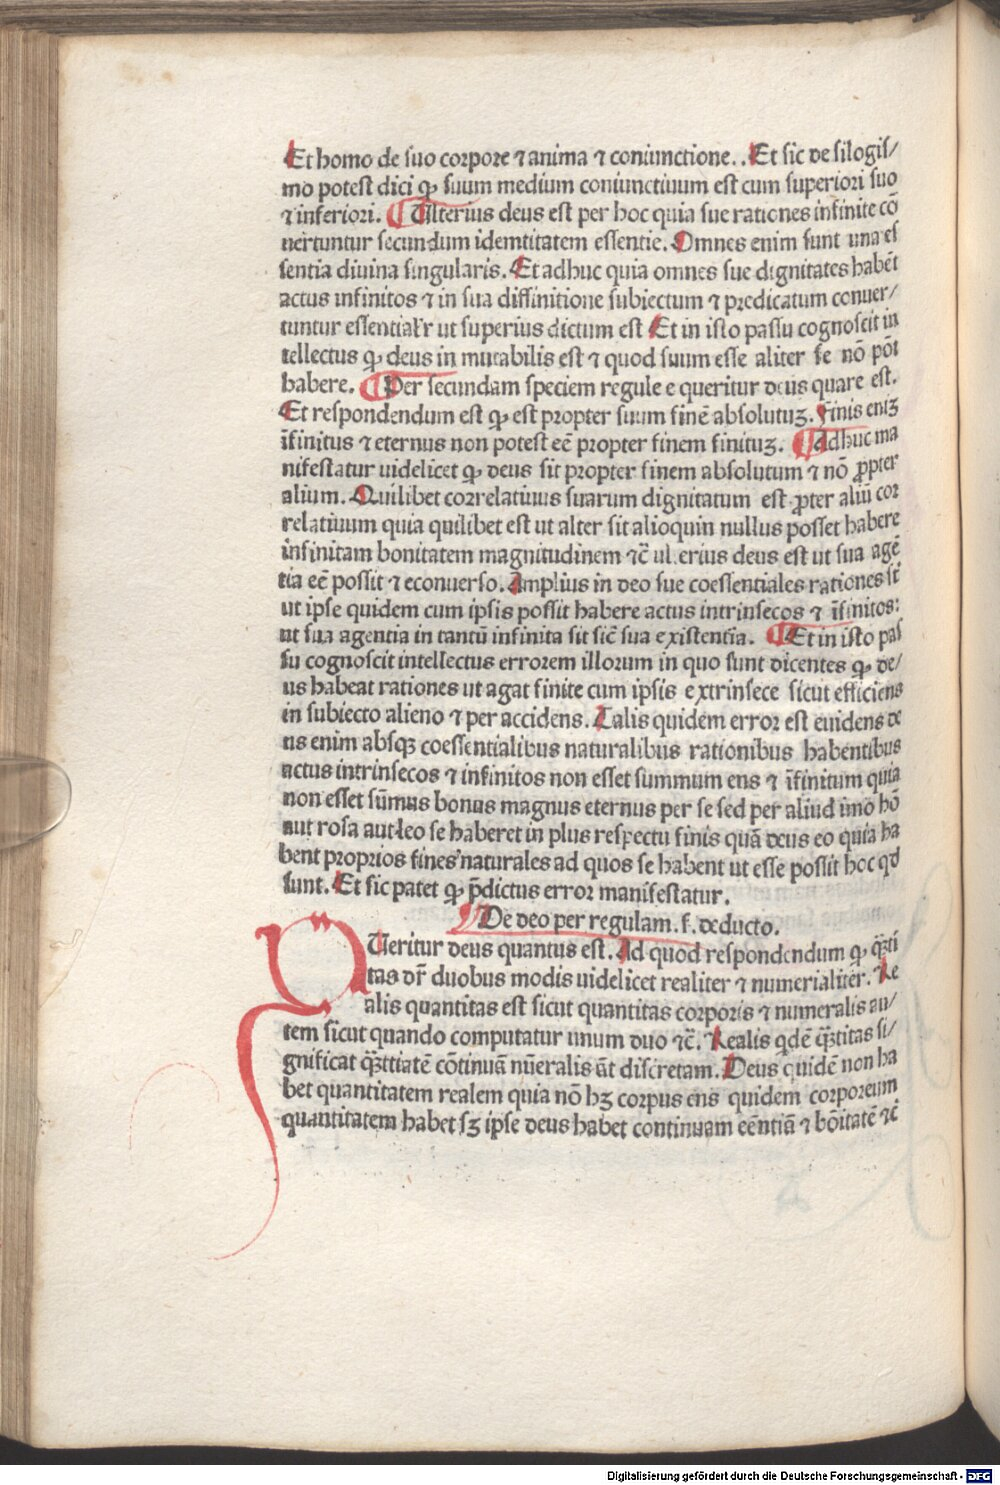 Et homo de suo corpore ⁊ anima ⁊ coniunctione.. Et sic de silogis/
mo potest dici ꝙ suum medium coniunctiuum est cum superiori suo
⁊ inferiori. ¶ Ulterius deus est per hoc quia sue rationes infinite cō
uertuntur secundum idemtitatem essentie. Omnes enim sunt una es
sentia diuina singularis. Et adhuc quia omnes sue dignitates habēt
actus infinitos ⁊ in sua diffinitione subiectum ⁊ predicatum conuer/
tuntur essentialr̄ ut superius dictum est Et in isto passu cognoscit in
tellectus ꝙ deus in mutabilis est ⁊ quod suum esse aliter se nō pōt
habere. ¶ Per secundam speciem regule e queritur deus quare est.
Et respondendum est ꝙ est propter suum finē absolutuꝫ. Finis eniꝫ
īfinitus ⁊ eternus non potest eē propter finem finituꝫ. ¶ Adhuc ma
nifestatur uidelicet ꝙ deus sit propter finem absolutum ⁊ nō ꝓpter
alium. Quilibet correlatiuus suarum dignitatum est ꝓpter aliū cor
relatiuum quia quilibet est ut alter sit alioquin nullus posset habere
infinitam bonitatem magnitudinem ⁊c̄ ulterius deus est ut sua agē
tia eē possit ⁊ econuerso. Amplius in deo sue coessentiales rationes st̄
ut ipse quidem cum ipsis possit habere actus intrinsecos ⁊ īfinitos:
ut sua agentia in tantū infinita sit sic̄ sua existentia. ¶ Et in isto pas
su cognoscit intellectus errorem illorum in quo sunt dicentes ꝙ de/
us habeat rationes ut agat finite cum ipsis extrinsece sicut efficiens
in subiecto alieno ⁊ per accidens. Talis quidem error est euidens de
us enim absqꝫ coessentialibus naturalibus rationibus habentibus
actus intrinsecos ⁊ infinitos non esset summum ens ⁊ īfinitum quia
non esset sūmus bonus magnus eternus per se sed per aliud īmo hō
aut rosa aut leo se haberet in plus respectu finis quā deus eo quia ha
bent proprios fines naturales ad quos se habent ut esse possit hoc qd
sunt. Et sic patet ꝙ p̄dictus error manifestatur.
¶ De deo per regulam. f. deducto.
QUeritur deus quantus est. Ad quod respondendum ꝙ q̄ꝫti
tas dr̄ duobus modis uidelicet realiter ⁊ numerialiter. Re
alis quantitas est sicut quantitas corporis ⁊ numeralis au/
tem sicut quando computatur unum duo ⁊c̄. Realis qdē q̄ꝫtitas si/
gnificat q̄ꝫttiatē cōtinuā nūeralis āt discretam. Deus quidē non ha
bet quantitatem realem quia nō hꝫ corpus ens quidem corporeum
quantitatem habet sꝫ ipse deus habet continuam eēntiā ⁊ bōitatē ⁊c̄
Digitalisierung gefördert durch die Deutsche Forschungsgemeinschaft - DFG